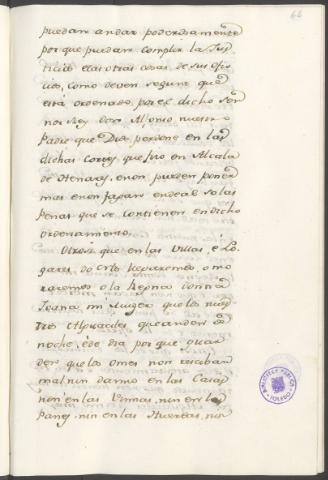 66
puedan andar poderosamente
porque puedan complir la Jus-
ticia e las otras cosas de sus ofi-
cios, como deven segunt que
está ordenado por el dicho Señor
nos Rey Don Alonso nuestro
Padre que Dios perdone en las
dichas Cortes que fizo en Alcala
de Henares, e non pueden poner
mas e non fagan ende al so las
penas que se contienen en dicho
ordenamiento.
Otrosi que en las Villas, e Lo-
gares, do Nos
o la Reyna Donna
Joana mi Muger que los nues-
tros Alguaciles que anden de
noche, e de dia, por que guar-
den que los omes non resciban
mal nin danno en las Casas
nin en las Vinnas, nin en los
Panes, nin en las Huertas, nin
BIBLIOTECA PUBLICA
TOLEDO